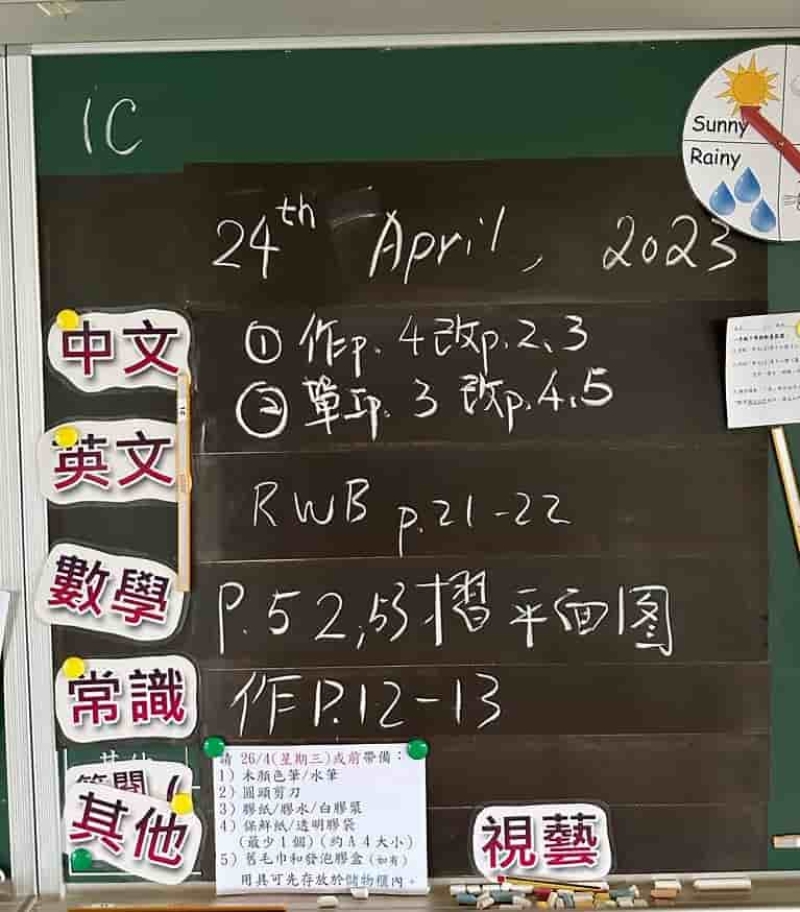 1C
Sunny
Rainy
24th April, 2023
中文
① 作p. 4 改p. 2、3
② 單工p. 3 改p. 4、5
英文
RWB p.21-22
數學
P.52,53摺平面图
常識
作P.12-13
其他
請 26/4(星期三)或前帶備：
1) 木顏色筆/水筆
2) 圓頭剪刀
3) 膠紙/膠水/白膠漿
4) 保鮮紙/透明膠袋
(最少1個)(約A4大小)
5) 舊毛巾和發泡膠盒(如有)
用具可先存放於儲物櫃內。
視藝